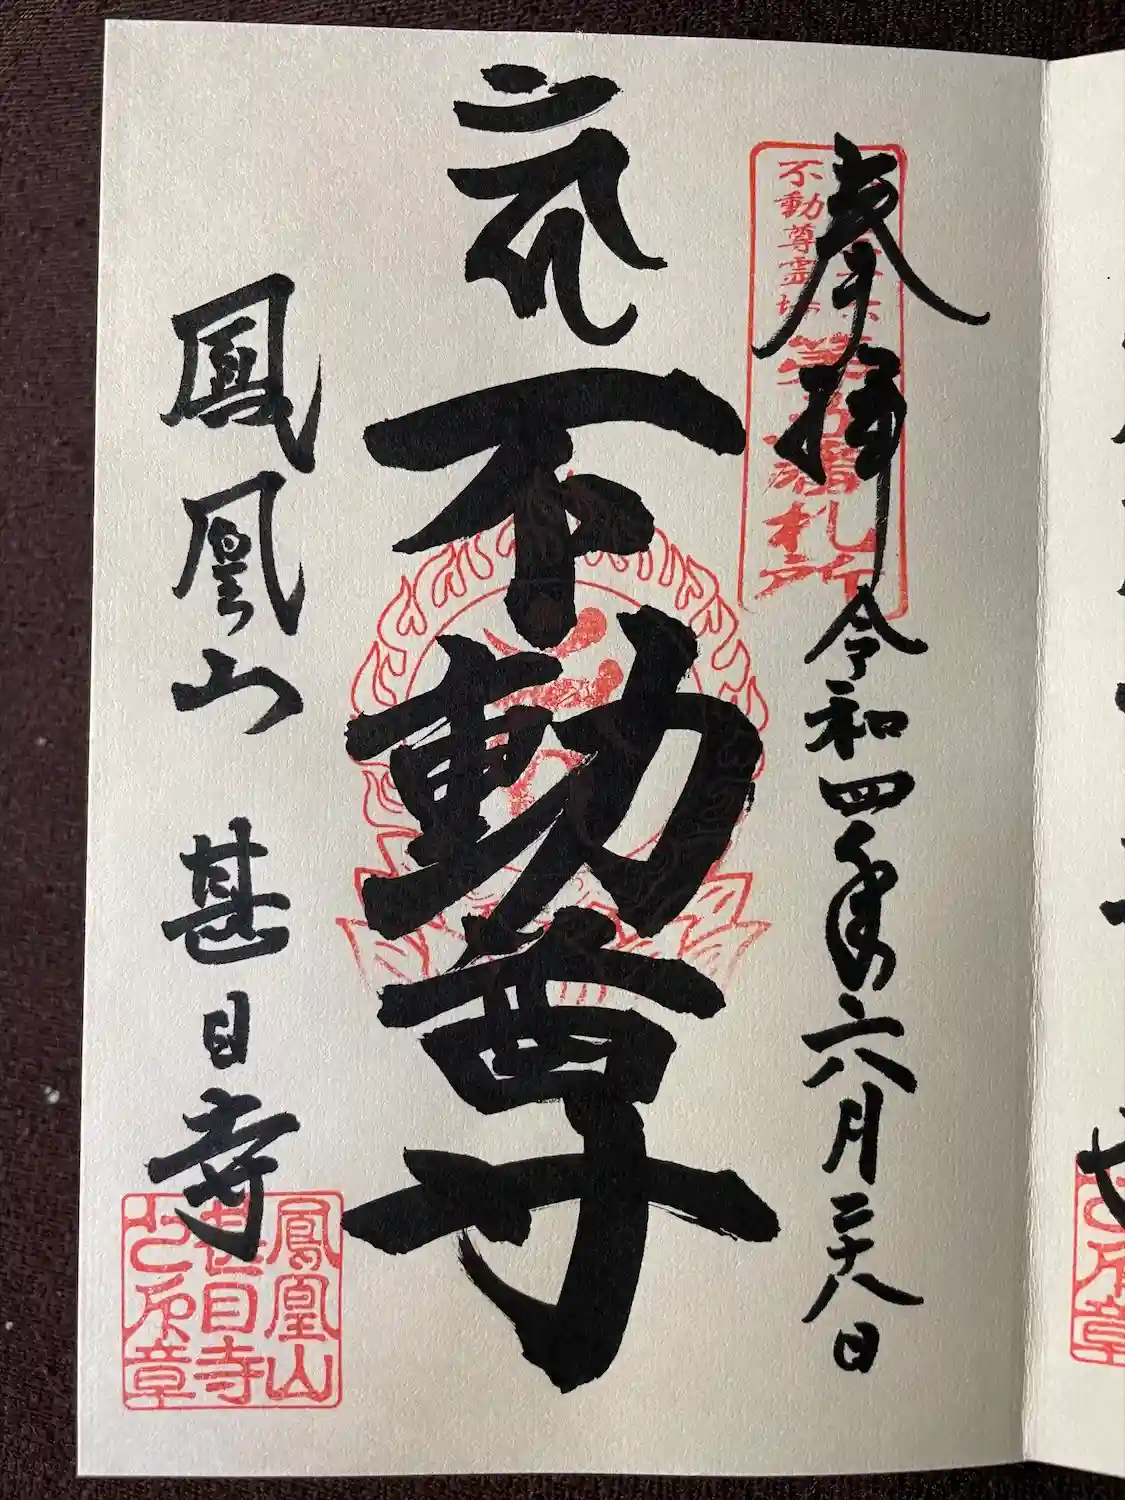 奉拝
令和四年六月二十八日
不動尊霊場
札所
不動尊
鳳凰山 甚目寺
鳳凰山
甚目寺